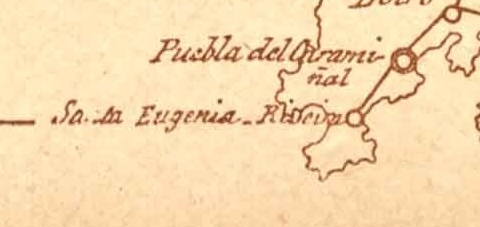 Puebla del Carami-
ñal
Sa. ta Eugenia - Riveira